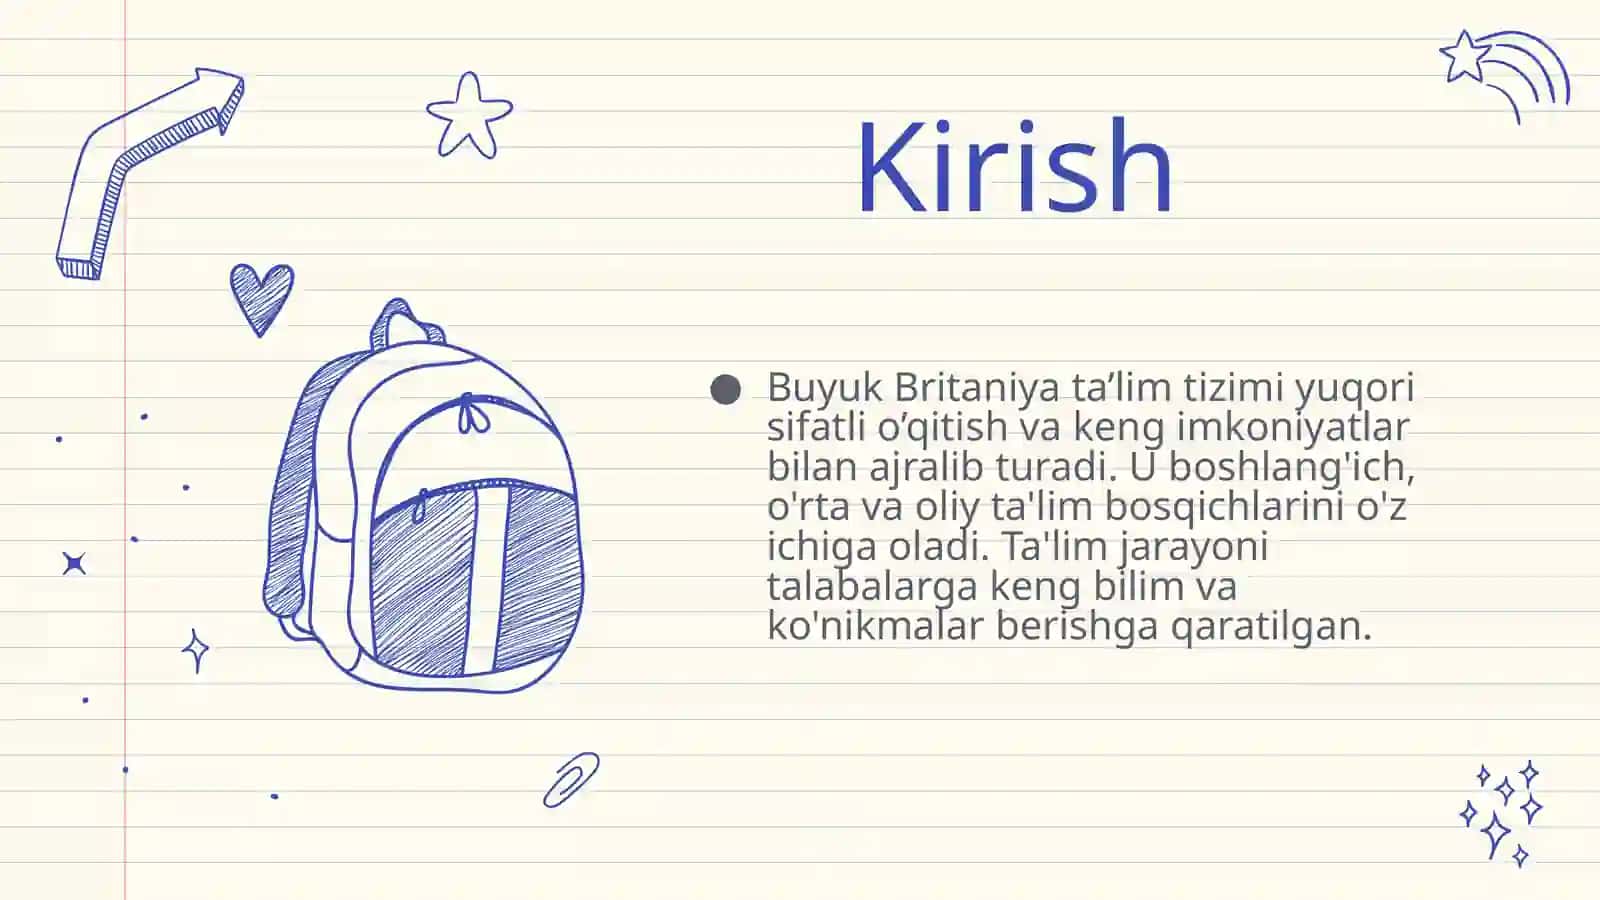 Kirish
● Buyuk Britaniya ta’lim tizimi yuqori
sifatli o’qitish va keng imkoniyatlar
bilan ajralib turadi. U boshlang'ich,
o'rta va oliy ta'lim bosqichlarini o'z
ichiga oladi. Ta'lim jarayoni
talabalarga keng bilim va
ko'nikmalar berishga qaratilgan.